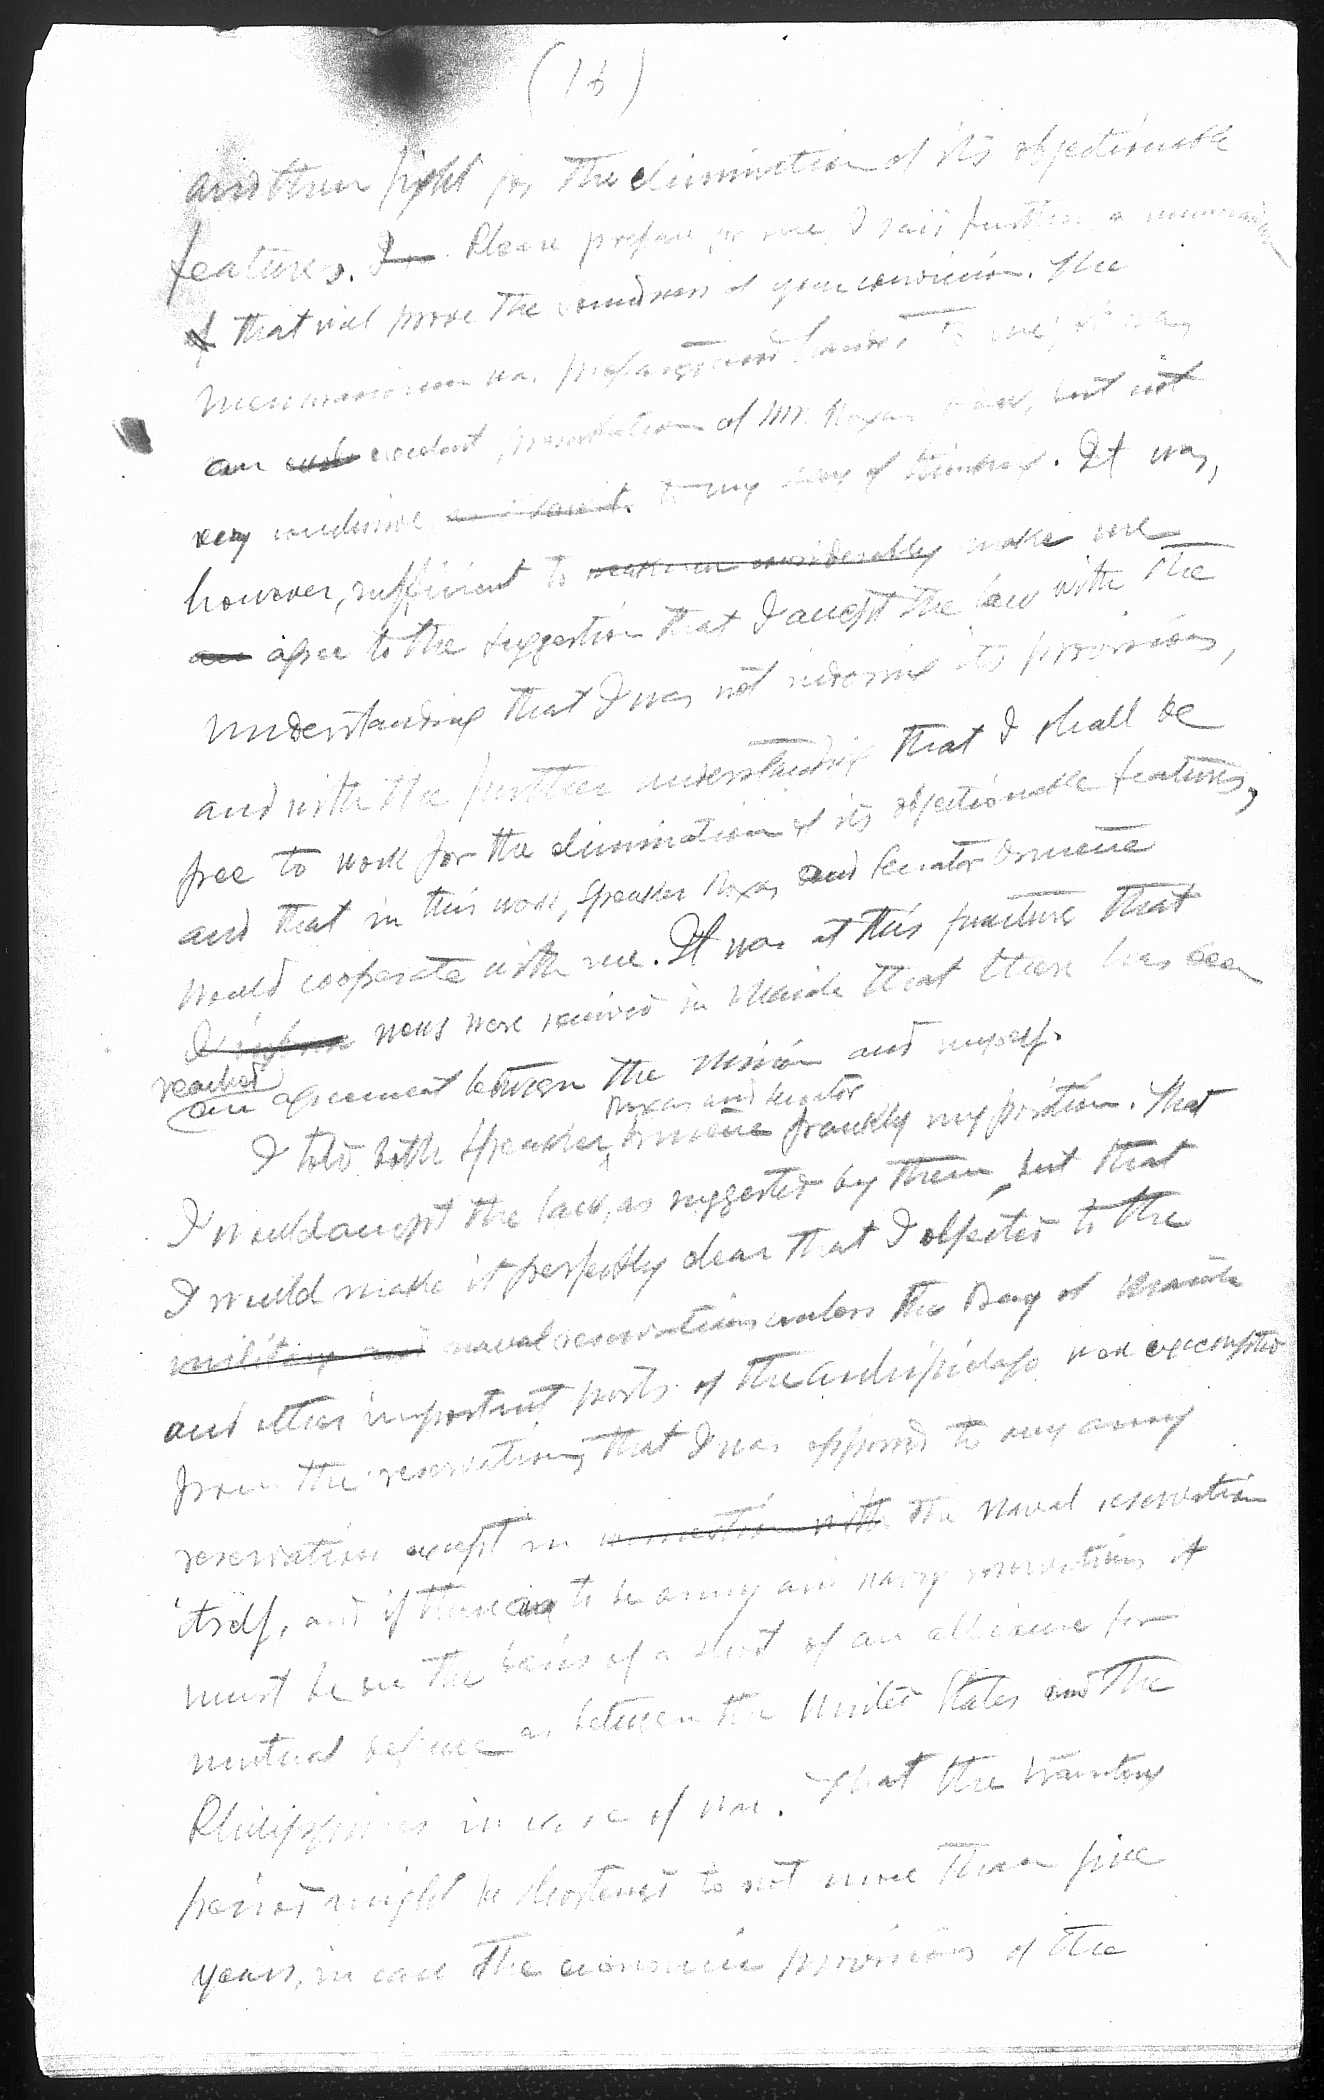 (16)
and then fight for the elimination of its objectionable
features. I Please prepare for me, I said further, a memorandum
of that will prove the soundness of your conviction. The
memorandum was prepared and handed to me; it was
an excellent presentation of Mr. Roxas view, but not
very conclusive to my way of thinking. It was,
however, sufficient to weaken me considerably make me
an agree to the suggestion that I accept the law with the
understanding that I was not indorsing its provisions,
and with the further understanding that I shall be
free to work for the elimination of its objectionable features,
and that in this work, Speaker Roxas and Senator Osmeña
would cooperate with me. It was at this juncture that
news were received in Manila that there has been
reached
an agreement between the Mission and myself.
Roxas and Senator
I told both Speaker Osmeña frankly my position. That
I would accept the law, as suggested by them, but that
I would make it perfectly clear that I objected to the
military and naval reservations unless the Bay of Manila
and other important ports of the Archipelago was excempted
from the reservations, that I was opposed to any army
reservation except in connection with the naval reservation
itself, and if there is to be army and navy reservations it
must be on the basis of a sort of an alliance for
mutual defense as between the United States and the
Philippines in case of war. That the transitory
period might be shortened to not more than five
years, in case the economic provisions of the